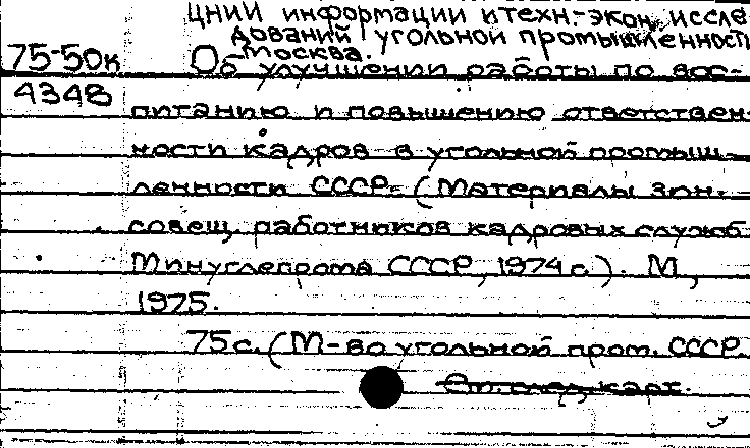 ЦНИИ информации и техн.-экон. иссле
дований угольной промышленности
Москва.
75-50к Об улучшении работы по вос-
4348 питанию и повышению ответствен
ности кадров в угольной промыш-
ленности СССР. (Материалы
совещ. работников кадровых служб
Минуглепрома СССР, 1974 г.). М.,
1975.
75 с. (М-во угольной пром. СССР.
См. след. карт.